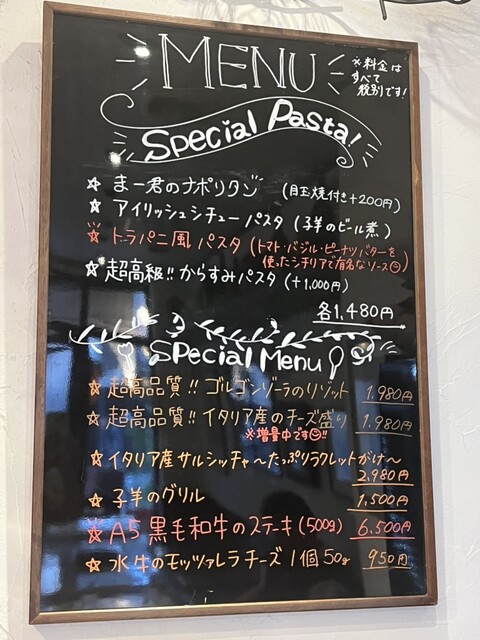 MENU
※料金は
すべて
税別です!
Special Pasta!
☆ まー君のナポリタン (目玉焼付き+200円)
☆ アイリッシュシチューパスタ (子羊のビール煮)
☆ トラパニ風パスタ (トマト・バジル・ピーナッツバターを
使ったシチリアで有名なソース☺)
☆ 超高級!! からすみパスタ (+1,000円)
各1,480円
Special Menu
☆ 超高品質!! ゴルゴンゾーラのリゾット 1,980円
☆ 超高品質!! イタリア産のチーズ盛り 1,980円
※増量中です☺!!
☆ イタリア産サルシッチャ〜たっぷりラクレットがけ〜
2,980円
☆ 子羊のグリル 1,500円
☆ A5黒毛和牛のステーキ (500g) 6,500円
☆ 水牛のモッツァレラチーズ 1個50g 950円